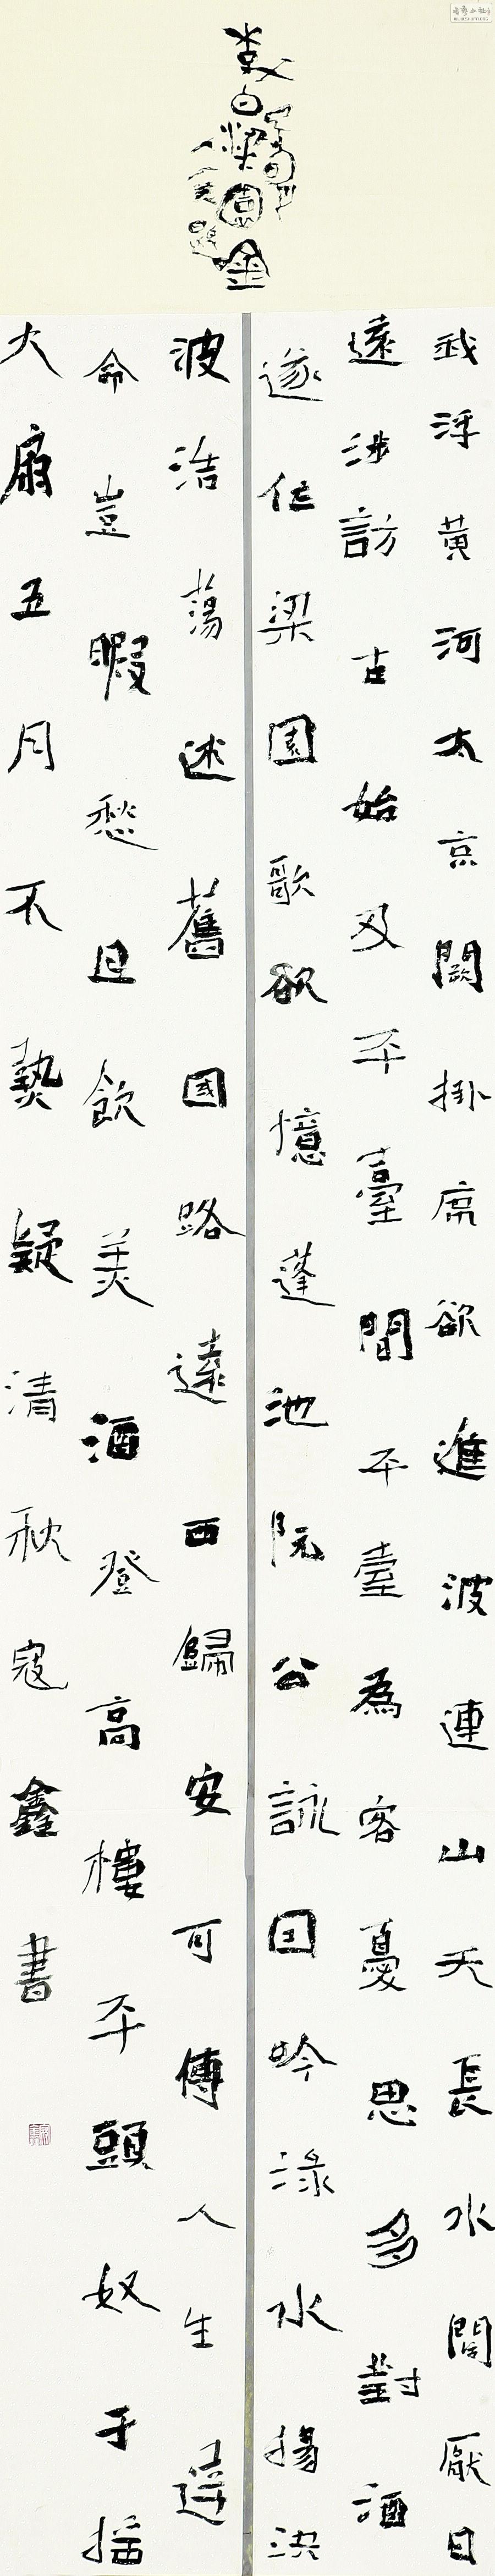 白梁園
我浮黃河去京闕掛席欲進波連山天長水闊厭日
遠涉訪古始及平臺間平臺為客憂思多對酒
遂作梁園歌卻憶蓬池阮公詠因吟淥水揚洪
波浩蕩迷舊國路遠西歸安可得人生達
命豈暇愁且飲美酒登高樓平頭奴子搖
大扇五月不熱疑清秋寇鑫書